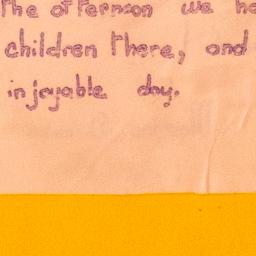 the afternoon we he
children there, and
injoyable day.